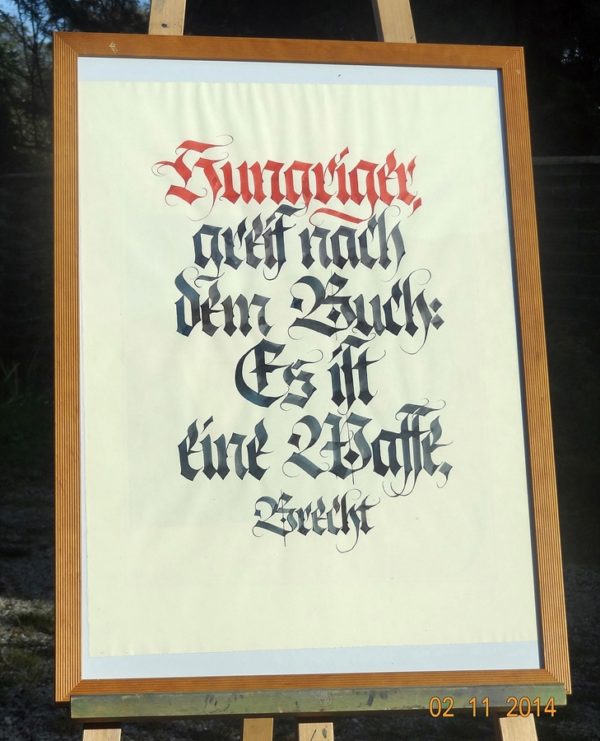 Hungriger,
greif nach
dem Buch:
Es ist
eine Waffe.
Brecht
02 11 2014